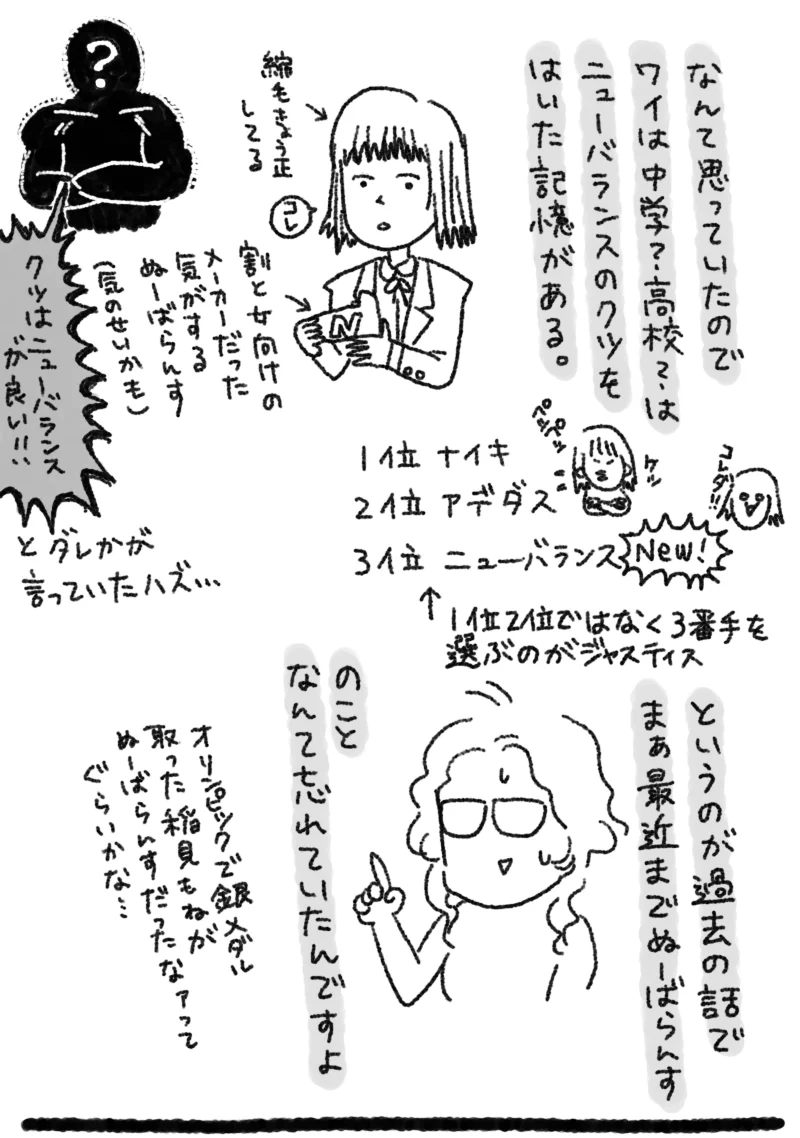 なんて思っていたので
ワイは中学?高校?は
ニューバランスのクツを
はいた記憶がある。
縮毛きょう正
してる
コレ
割と女向けの
メーカーだった
気がする
ぬーばらんす
(気のせいかも)
?
クツはニューバランス
が良い!!!
とダレかが
言っていたハズ…
1位 ナイキ
2位 アデダス
3位 ニューバランス
New!
ペッペッ
ケッ
コレダ!!
↑
1位2位ではなく3番手を
選ぶのがジャスティス
というのが過去の話で
まぁ最近までぬーばらんす
のこと
なんて忘れていたんですよ
オリンピックで銀メダル
取った稲見もねが
ぬーばらんすだったなァって
ぐらいかな…
N